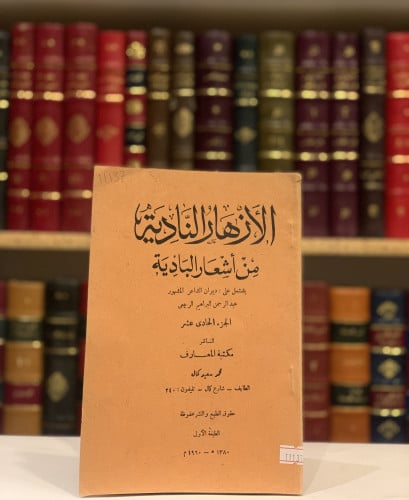 11137
الأزهار النادية
من أشعار البادية
يشتمل على : ديوان الشاعر المشهور
عبد الرحمن البراهيم الربيعي
الجزء الحادى عشر
الناشر
مكتبة المعارف
محمد سعيد كمال
الطائف – شارع كمال – تليفون : ٢٤٠
حقوق الطبع والنشر محفوظة
الطبعة الأولى
١٣٨٠ ه – ١٩٦٠ م